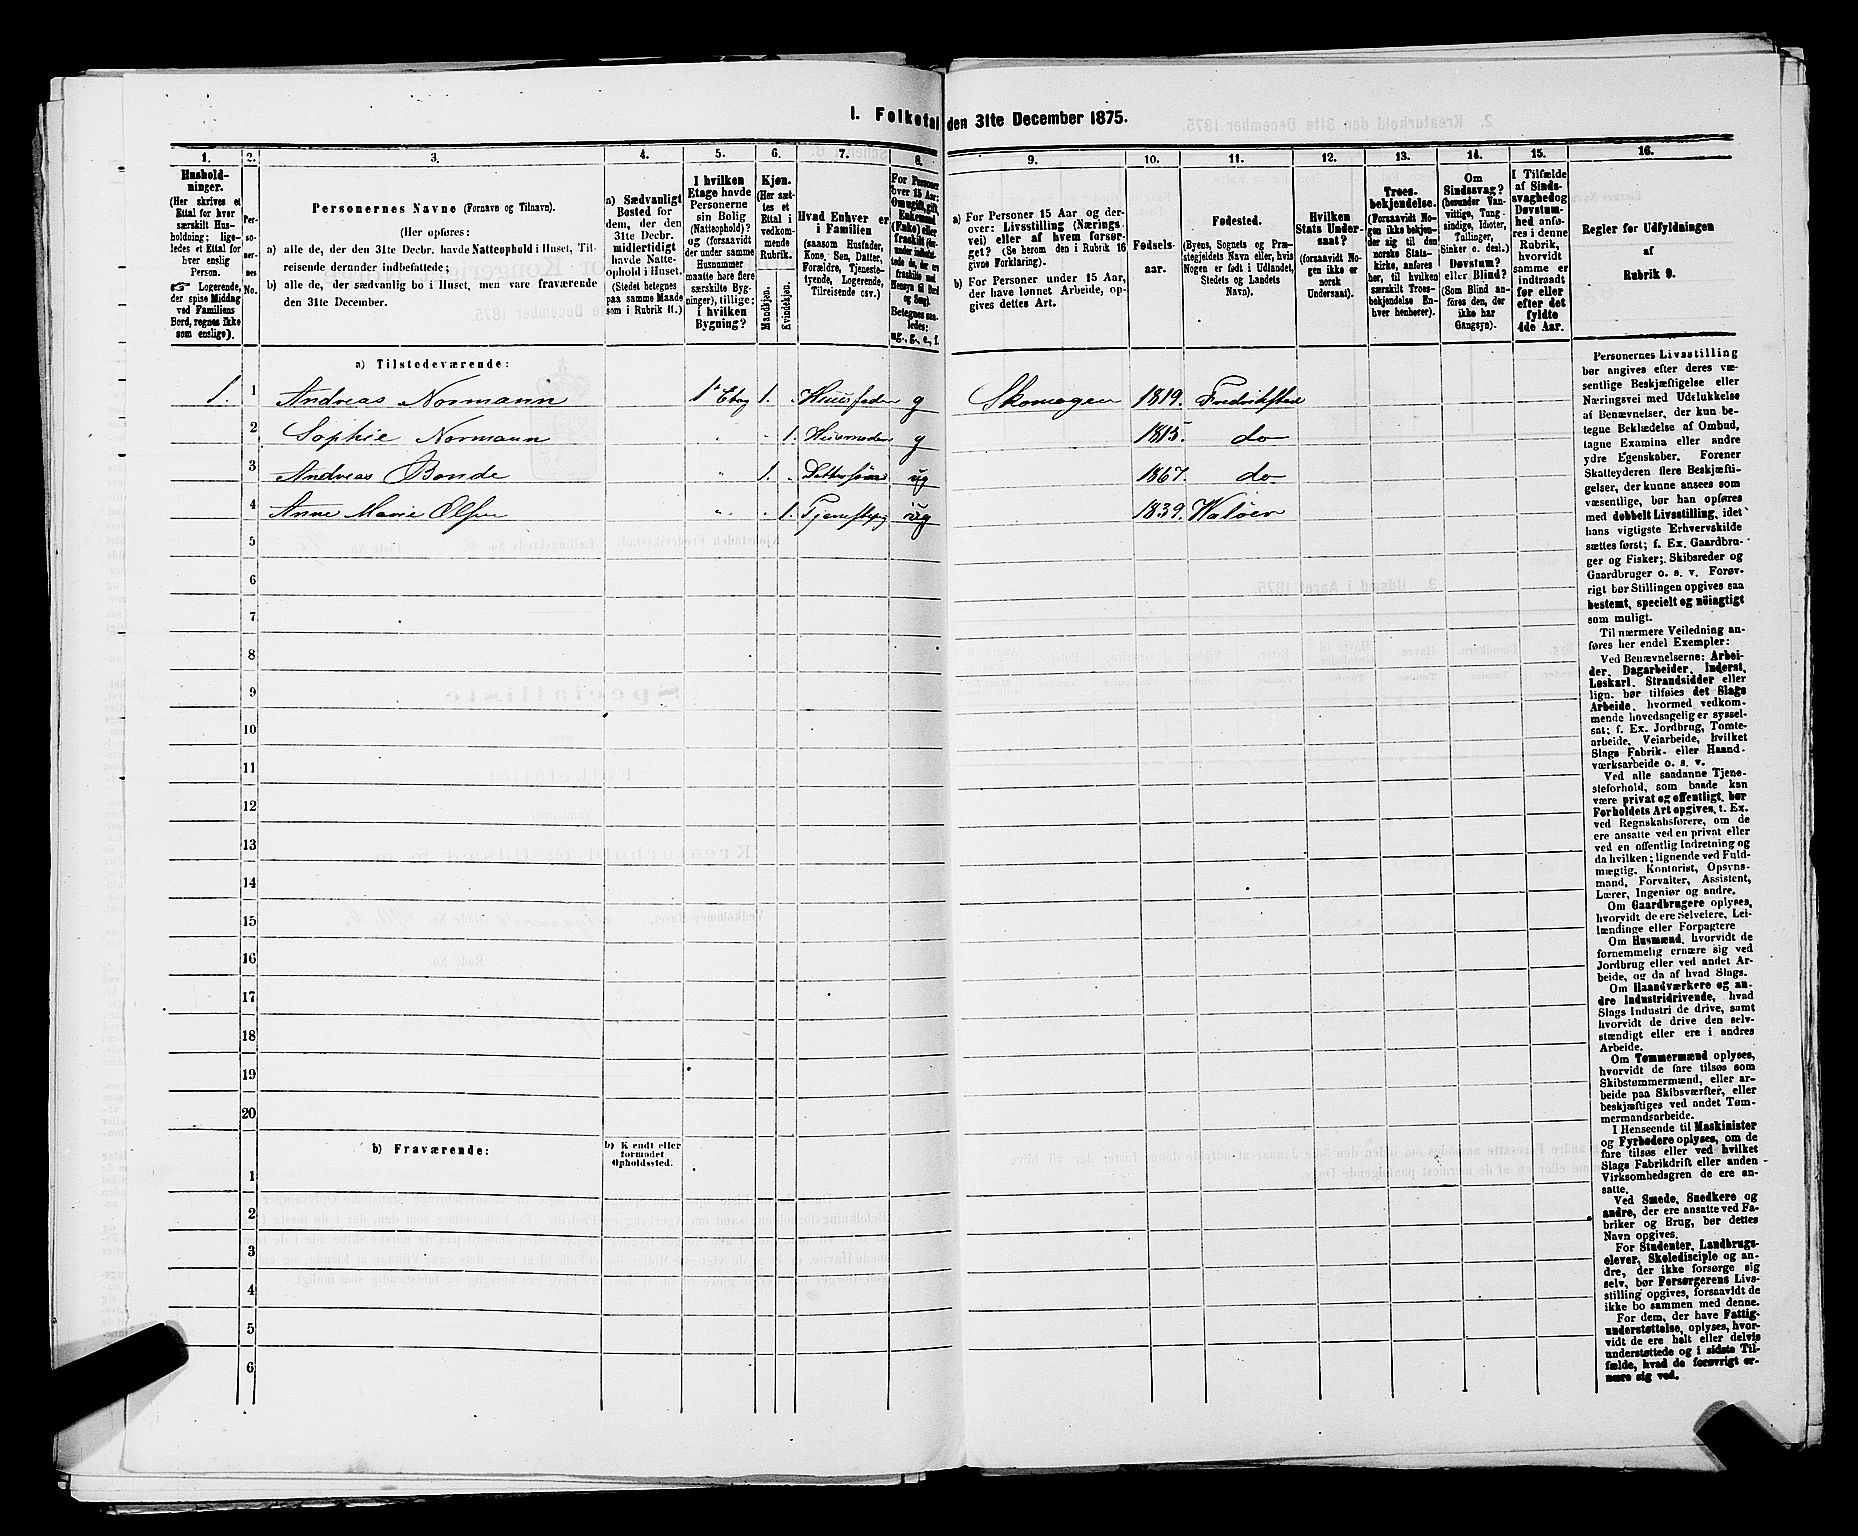 1. Folketal den 31te December 1875.
1. 2. 3. 4. 5. 6. 7. 8. 9. 10. 11. 12. 13. 14. 15. 16.
Hushold-
ninger.
(Her skrives et
Ettal for hver
særskilt Hus-
holdning; lige-
ledes et Ettal for
hver enslig
Person.
☞ Logerende,
der spise Middag
ved Familiens
Bord, regnes ikke
som enslige).
Per-
so-
ner-
nes
No.
Personernes Navne (Fornavn og Tilnavn).
(Her opføres:
a) alle de, der den 31te Decbr. havde Natteophold i Huset, Til-
reisende derunder indbefattede;
b) alle de, der sædvanlig bo i Huset, men vare fraværende
den 31te December.
a) Sædvanligt
Bosted for
dem, der den
31te Decbr.
midlertidigt
havde Natte-
ophold i Huset.
(Stedet betegnes
paa samme Maade
som i Rubrik 11.)
I hvilken
Etage havde
Personerne
sin Bolig
(Natteophold)?
og (forsaavidt
der under samme
Husnummer
maatte høre flere
særskilte Byg-
ninger), tillige:
i hvilken
Bygning?
Kjøn.
(Her sæt-
tes et
Ettal i
vedkom-
mende
Rubrik.
Mandkjøn.
Kvindekjøn.
Hvad Enhver er
i Familien
(saasom Husfader,
Kone, Søn, Datter,
Forældre, Tjeneste-
tyende, Logerende,
Tilreisende osv.)
For Personer
over 15 Aar:
Om ugift, gift,
Enkemand
(Enke) eller
fraskilt
Betegnes saa-
ledes:
ug., g., e., f.
a) For Personer 15 Aar og der-
over: Livsstilling (Nærings-
vei) eller af hvem forsør-
get? (Se herom den i Rubrik 16
givne Forklaring).
b) For Personer under 15 Aar,
der have lønnet Arbeide, op-
gives dettes Art.
Fødsels-
aar.
Fødested.
(Byens, Sognets og Præ-
stegjeldets Navn eller, hvis
Nogen er født i Udlandet,
Stedets og Landets
Navn).
Hvilken
Stats Under-
saat?
(forsaavidt No-
gen ikke er
norsk
Undersaat).
Troes-
bekjendelse.
(Forsaavidt No-
gen ikke bekjen-
der sig til den
norske Stats-
kirke, anføres
her, til hvilken
særskilt Troes-
bekjendelse En-
hver henhører).
Om
Sindssvag?
(herunder Van-
vittige, Tung-
sindige, Idioter,
Tullinger,
Sinker o. desl.)
Døvstum?
eller Blind?
(Som Blind an-
føres den, der
ikke har
Gangsyn).
I Tilfælde
af Sinds-
svaghed og
Døvstum-
hed anfø-
res i denne
Rubrik,
hvorvidt
samme er
indtraadt
før eller
efter det
fyldte
4de Aar.
Regler for Udfyldningen
af
Rubrik 9.
a) Tilstedeværende:
1. 1 Andreas Normann 1ª Etag 1. Huusfader g Skomager 1819. Fredrikstad
2 Sophie Normann " 1. Huusmoder g 1815. do
3 Andreas Bonde " 1. Dattersøn ug 1867. do
4 Anne Marie Olsen " 1. Tjenestepig ug 1839. Waløer
5
6
7
8
9
10
11
12
13
14
15
16
17
18
19
20
b) Fraværende:
b) Kjendt eller
formodet
Opholdssted.
1
2
3
4
5
6
Personernes Livsstilling
bør angives efter deres væ-
sentlige Beskjæftigelse eller
Næringsvei med Udelukkelse
af Benævnelser, der kun be-
tegne Beklædelse af Ombud,
tagne Examina eller andre
ydre Egenskaber. Forener
Skatteyderen flere Beskjæfti-
gelser, der kunne ansees som
væsentlige, bør han opføres
med dobbelt Livsstilling, idet
hans vigtigste Erhvervskilde
sættes først; f. Ex. Gaardbru-
ger og Fisker; Skibsreder og
Gaardbruger o. s. v. Forøv-
rigt bør Stillingen opgives saa
bestemt, specielt og nöiagtigt
som muligt.
Til nærmere Veiledning an-
føres her endel Exempler:
Ved Benævnelserne: Arbei-
der, Dagarbeider, Inderst,
Løskarl, Strandsidder eller
lign. bør tilføies det Slags
Arbeide, hvormed vedkom-
mende hovedsagelig er syssel-
sat; f. Ex. Jordbrug, Tomte-
arbeide, Veiarbeide, hvilket
Slags Fabrik- eller Haand-
værksarbeide o. s. v.
Ved alle saadanne Tjene-
steforhold, som baade kan
være privat og offentligt, bør
Forholdets Art opgives, f. Ex.
ved Regnskabsførere, om de
ere ansatte ved en privat eller
ved en offentlig Indretning og
da hvilken; lignende ved Fuld-
mægtig, Kontorist, Opsyns-
mand, Forvalter, Assistent,
Lærer, Ingeniør og andre.
Om Gaardbrugere oplyses,
hvorvidt de ere Selveiere, Lei-
lændinge eller Forpagtere
Om Husmænd, hvorvidt de
fornemmelig ernære sig ved
Jordbrug eller ved andet Ar-
beide, og da af hvad Slags.
Om Haandværkere og an-
dre Industridrivende, hvad
Slags Industri de drive, samt
hvorvidt de drive den selv-
stændigt eller ere i andres
Arbeide.
Om Tømmermænd oplyses,
hvorvidt de fare tilsøs som
Skibstømmermænd, eller ar-
beide paa Skibsværfter, eller
beskjæftiges ved andet Tøm-
mermandsarbeide.
I Henseende til Maskinister
og Fyrbødere oplyses, om de
fare tilsøs eller ved hvilket
Slags Fabrikdrift eller anden
Virksomhedsgren de ere an-
satte.
Ved Smede, Snedkere og
andre, der ere ansatte ved Fa-
briker og Brug, bør dettes
Navn opgives.
For Studenter, Landbrugs-
elever, Skoledisciple og an-
dre, der ikke forsørge sig
selv, bør Forsørgerens Livs-
stilling opgives, forsaavidt de
ikke bo sammen med denne.
For dem, der have Fattig-
understøttelse, oplyses, hvor-
vidt de ere helt eller delvis
understøttede og i sidste Til-
fælde, hvad de forøvrigt er-
nære sig ved.